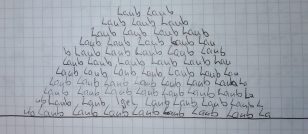 Laub Laub
Laub Laub Laub
Laub Laub Laub Laub
Laub Laub Laub Laub Lau
b Laub Laub Laub Laub Laub
Laub Laub Laub Laub Laub Lau
Laub Laub Laub Laub Laub Laub La
Laub Laub Laub Laub Laub Laub La
Laub Laub Laub Laub Laub Laub La
ub Laub Igel Laub Laub Laub Laub L
ub Laub Laub Laub Laub Laub Laub Laub La